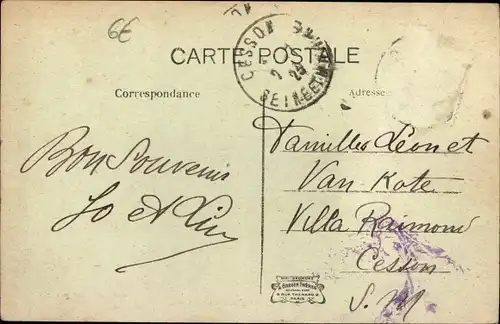 6€
CARTE POSTALE
CESSON
SEINE-ET-
Correspondance
Adresse
Bon Souvenir
Jo et
Familles Léon et
Van Kote
Villa Raimond
Cesson
S. M
PARIS